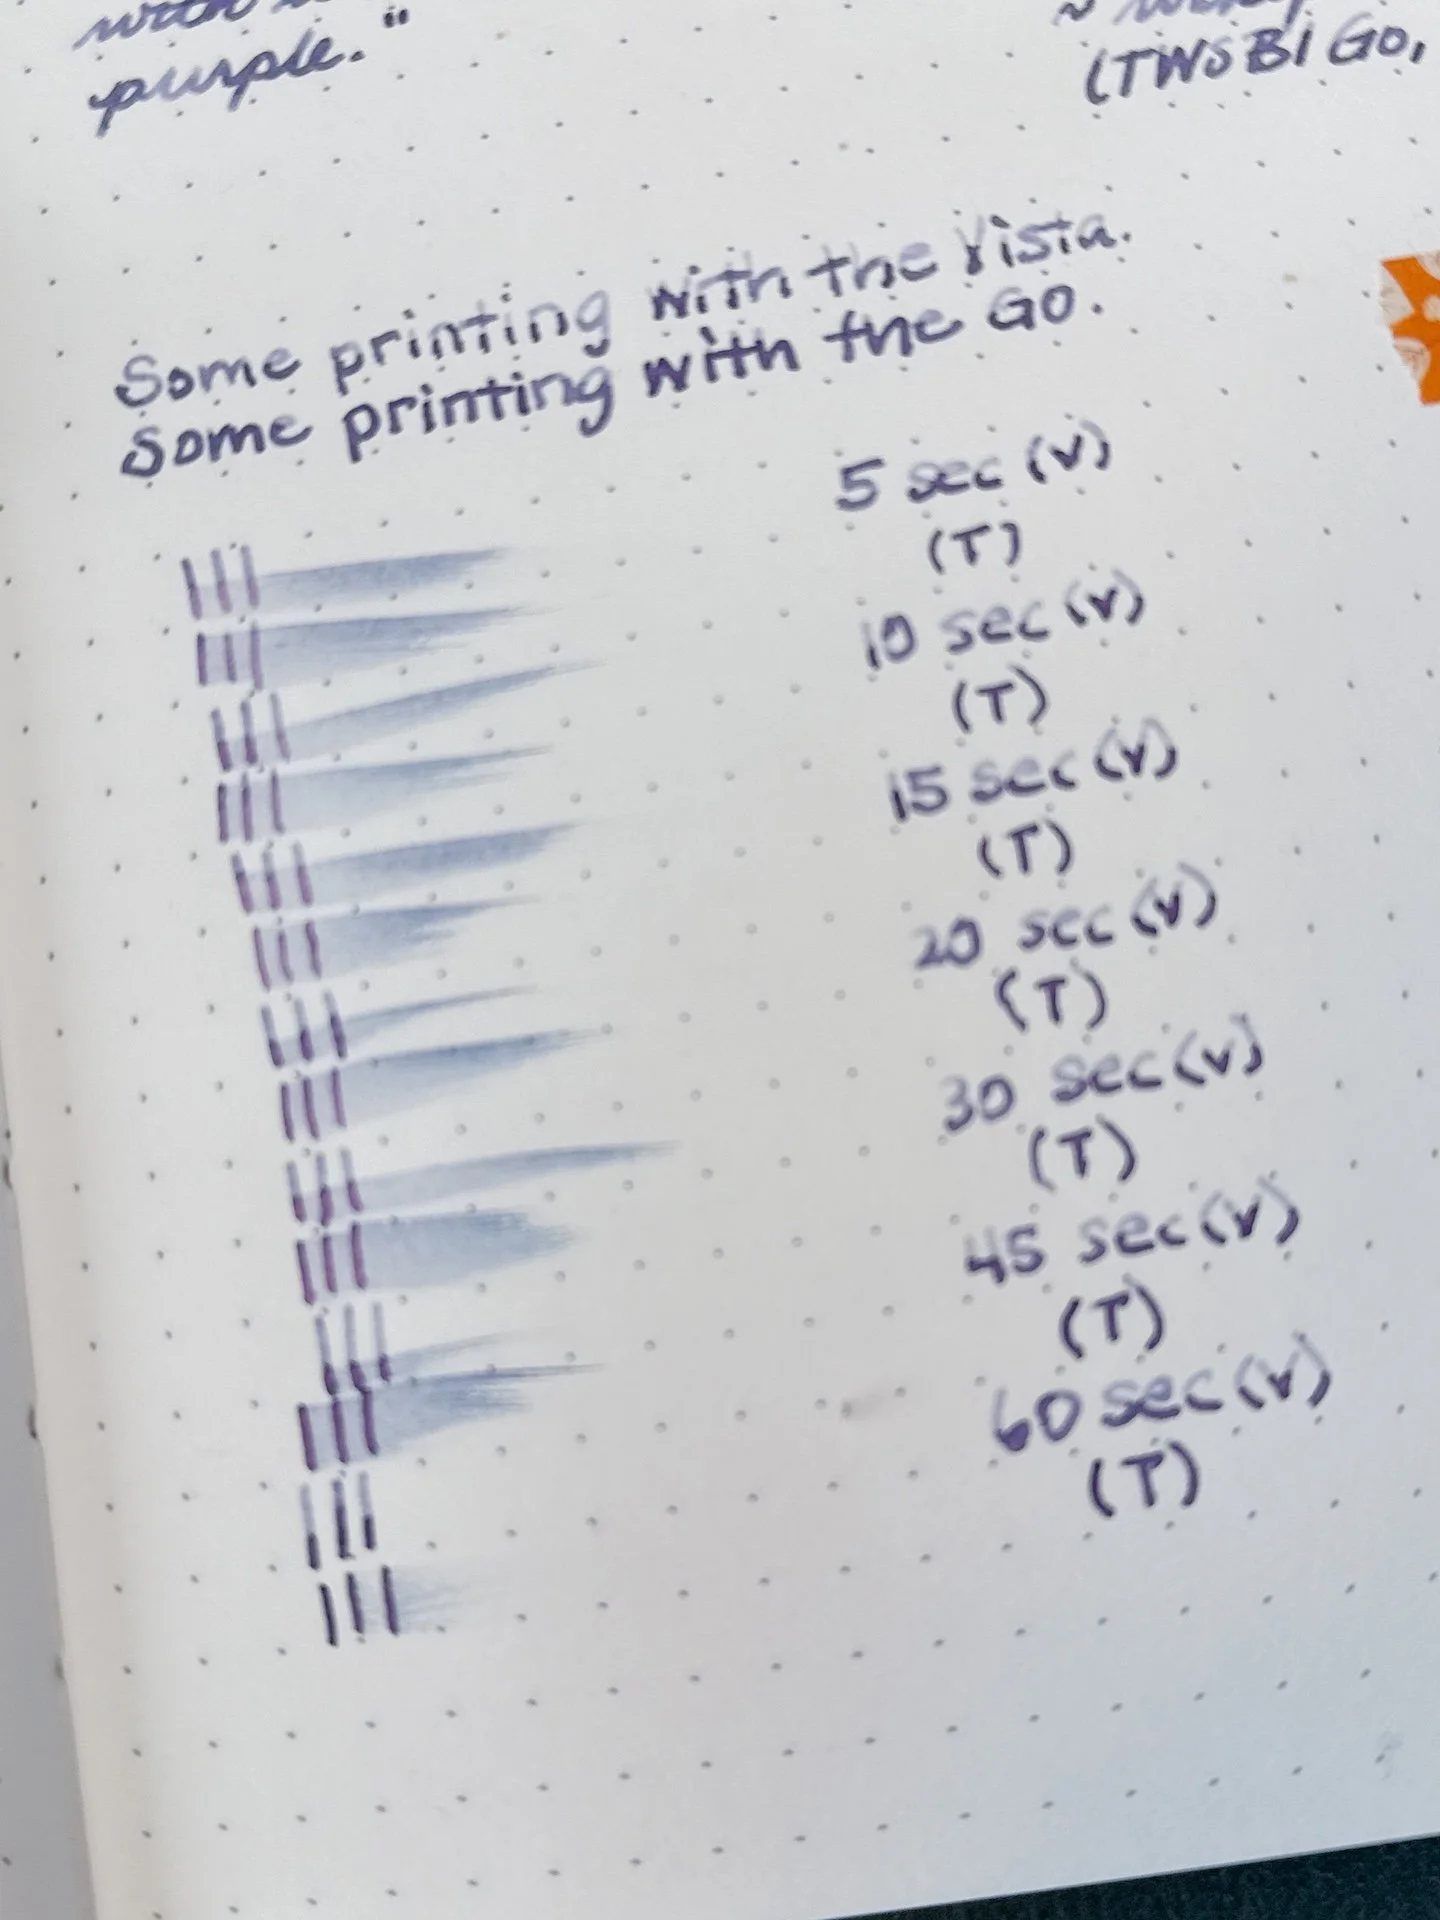 purple."
(TWSBI GO,
Some printing with the Vista.
Some printing with the GO.
5 sec (V)
(T)
10 sec (V)
(T)
15 sec (V)
(T)
20 sec (V)
(T)
30 sec (V)
(T)
45 sec (V)
(T)
60 sec (V)
(T)